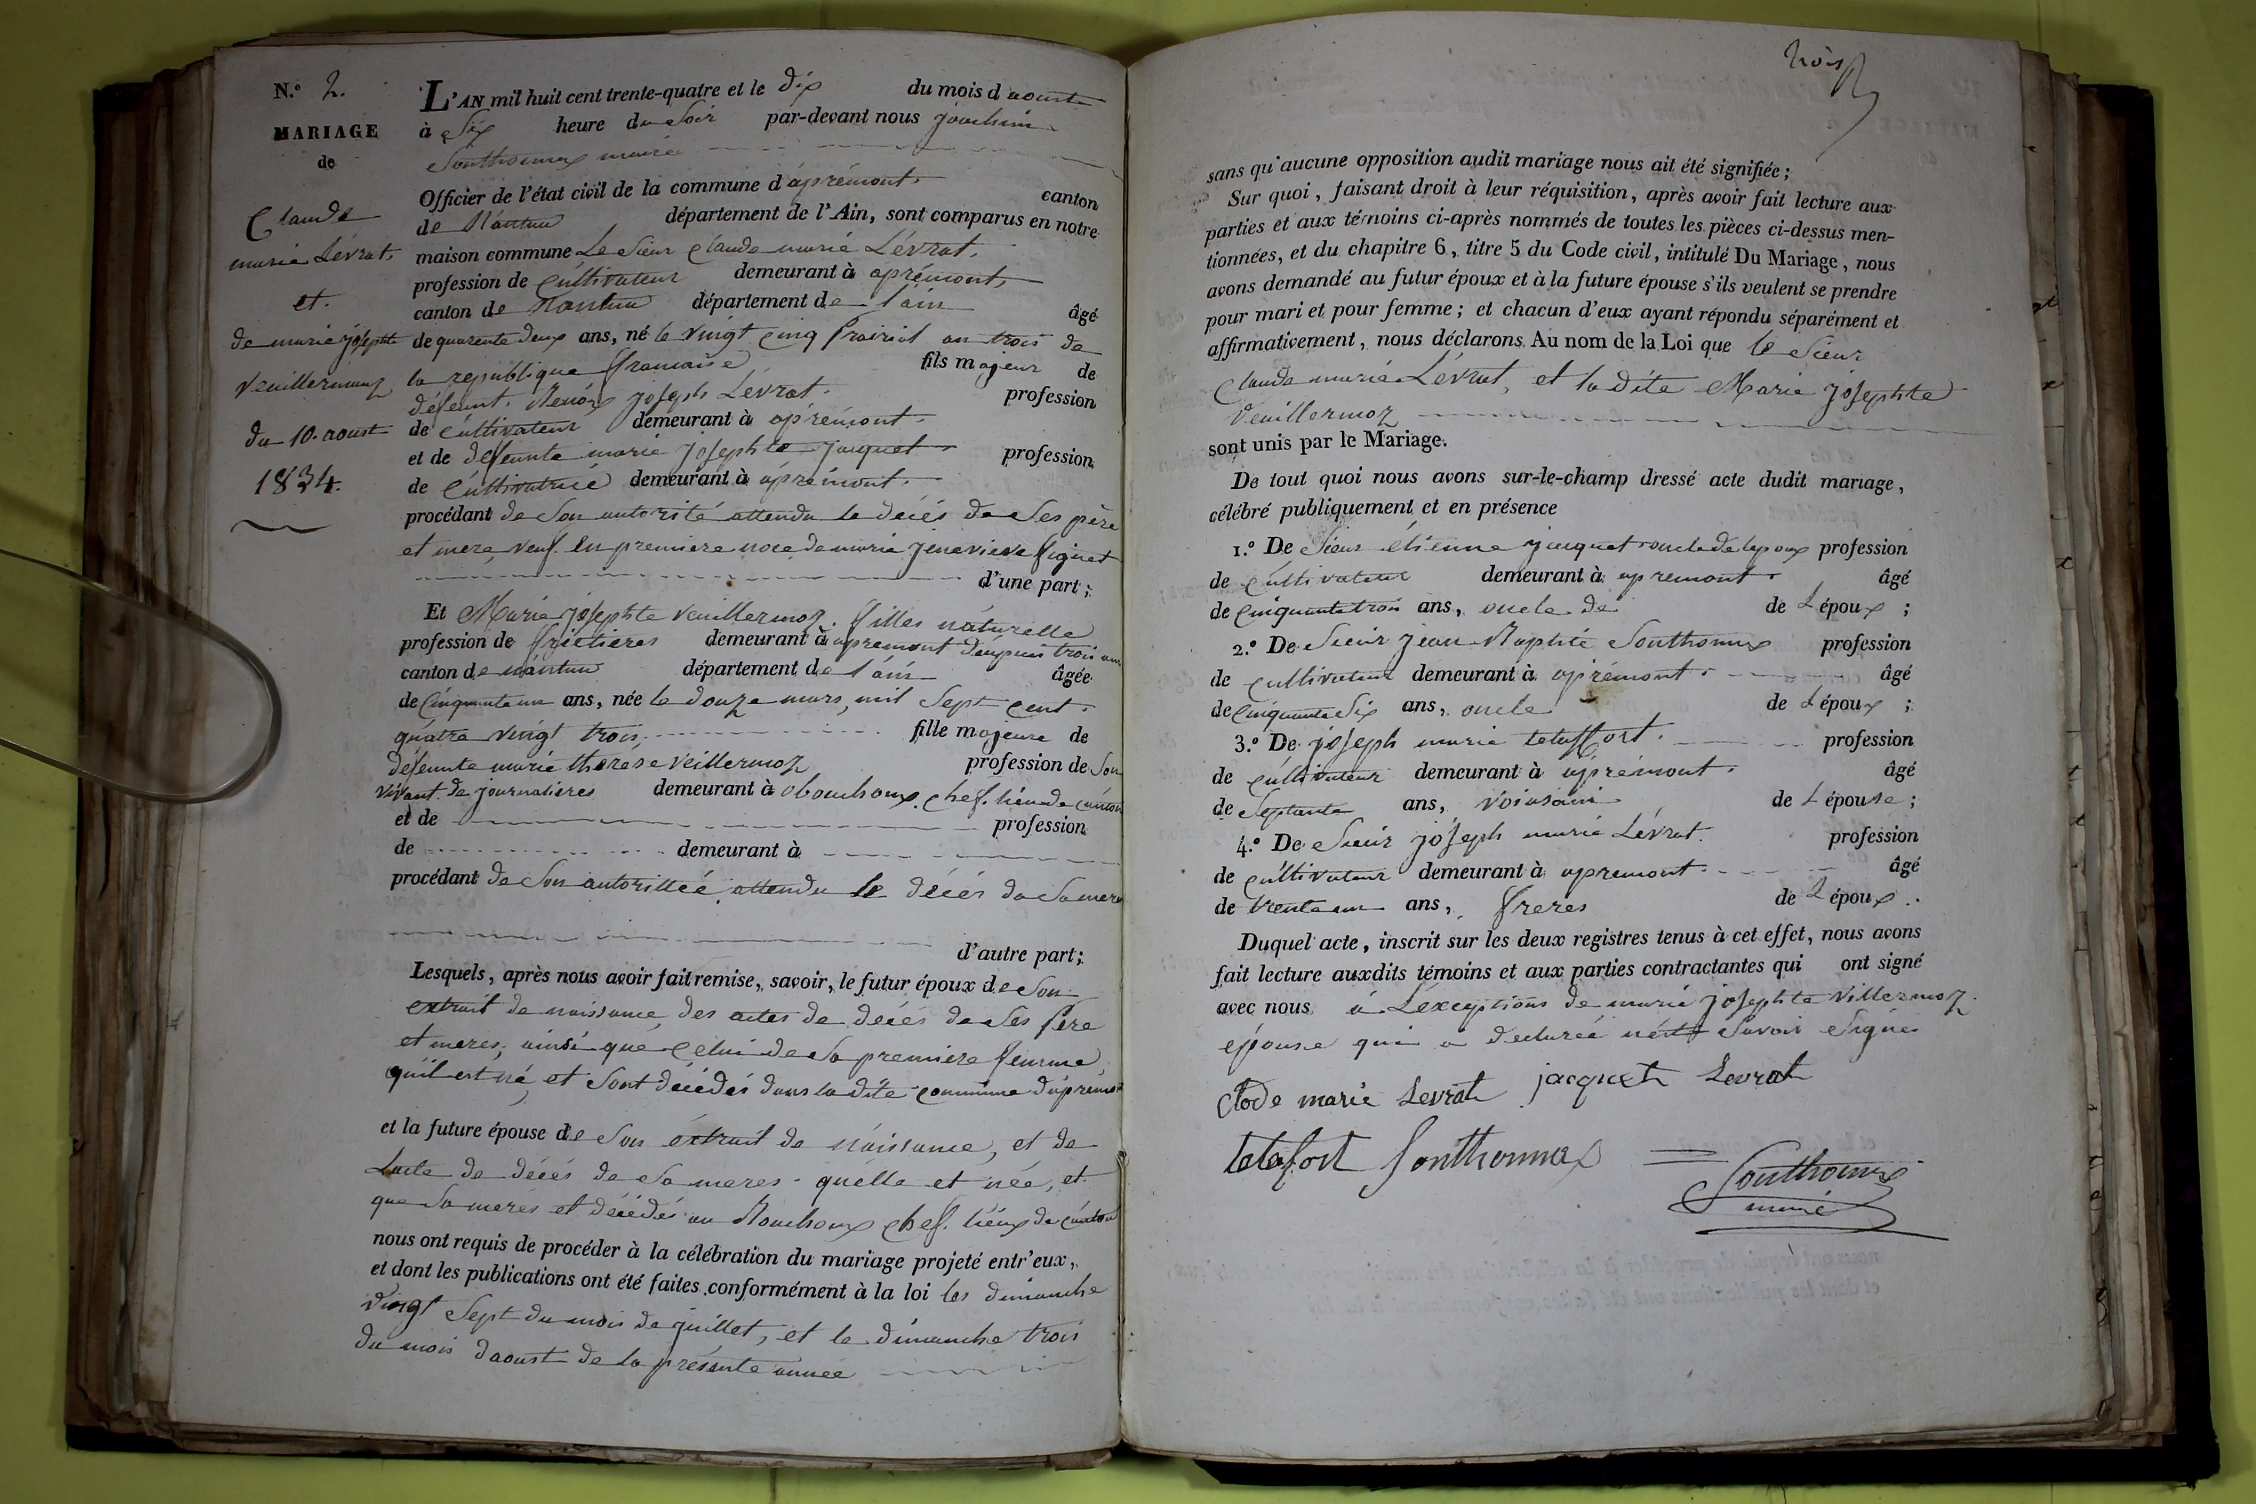 N.º 2.
MARIAGE
de
Claude
marie Lévrat.
et.
de marie josephte
Veuillermoz
du 10. aoust
1834.
L'AN mil huit cent trente-quatre et le dix du mois d'aoust
à Six heure du Soir par-devant nous joachim
Sonthonnax maire
Officier de l'état civil de la commune d'apremont. canton
de Nantua département de l'Ain, sont comparus en notre
maison commune Le Sieur Claude marie Lévrat.
profession de Cultivateur demeurant à apremont,
canton de Nantua département de l'ain âgé
de quarente deux ans, né le vingt cinq prairial an trois de
la republique francaise fils majeur de
défeunt. joseph Lévrat. profession
de Cultivateur demeurant à apremont.
et de defeunte marie josephte jacquet. profession
de Cultivatrice demeurant à apremont.
procédant de Son autorité attendu le décés de Ses père
et mere, veuf. en premiere noce de marie jenevieve
d'une part;
Et Marie josephte Veuillermoz. filles naturelle
profession de demeurant à apremont depuis trois ans
canton de nantua département de l'ain âgée
de Cinquante un ans, née le douze mars, mil Sept Cent.
quatre vingt trois, fille majeure de
defeunte marie therese Veillermoz profession de Son
vivant de journalieres demeurant à obouchoux. chef. lieu de canton
et de profession
de demeurant à
procédant de Son autorittéé, attendu le décés de Sa mere
d'autre part;
Lesquels, après nous avoir fait remise, savoir, le futur époux de Son
extrait de naissance, des actes de décés de Ses pere
et meres, ainsi que Celui de Sa premiere femme,
qu'il est né, et Sont décédés dans la dite commune d'apremont
et la future épouse de Son extrait de naissance, et de
Lacte de décés de Sa meres. quélle et née, et
que Sa meres et décédé au Bouchoux chef. lieux de canton
nous ont requis de procéder à la célébration du mariage projeté entr'eux,
et dont les publications ont été faites conformément à la loi les dimanche
vingt Sept du mois de juillet, et le dimanche trois
du mois d'aoust de la présente année
trois
sans qu'aucune opposition audit mariage nous ait été signifiée;
Sur quoi, faisant droit à leur réquisition, après avoir fait lecture aux
parties et aux témoins ci-après nommés de toutes les pièces ci-dessus men-
tionnées, et du chapitre 6, titre 5 du Code civil, intitulé Du Mariage, nous
avons demandé au futur époux et à la future épouse s'ils veulent se prendre
pour mari et pour femme; et chacun d'eux ayant répondu séparément et
affirmativement, nous déclarons Au nom de la Loi que le Sieur
Claude marie Lévrat, et la dite Marie josephte
Veuillermoz
sont unis par le Mariage.
De tout quoi nous avons sur-le-champ dressé acte dudit mariage,
célébré publiquement et en présence
1.º De Sieur étienne jacquet oncle de lepoux profession
de cultivateur demeurant à apremont. âgé
de cinquante trois ans, oncle de de L époux ;
2.º De Sieur jean Baptite Sonthonnax profession
de cultivateur demeurant à apremont. âgé
de Cinquante Six ans, oncle de L époux ;
3.º De joseph marie tetaffort. profession
de cultivateur demeurant à apremont. âgé
de Septante ans, de L épouse ;
4.º De Sieur joseph marie Lévrat. profession
de cultivateur demeurant à apremont. âgé
de trente un ans, freres de L époux .
Duquel acte, inscrit sur les deux registres tenus à cet effet, nous avons
fait lecture auxdits témoins et aux parties contractantes qui ont signé
avec nous a L'exceptions de marie josephte Villermoz.
épouse qui a declareé Savoir Signer
Clode marie Levrat jacquet Levrat
tetafort Sonthonnax
Sonthonnax
maire